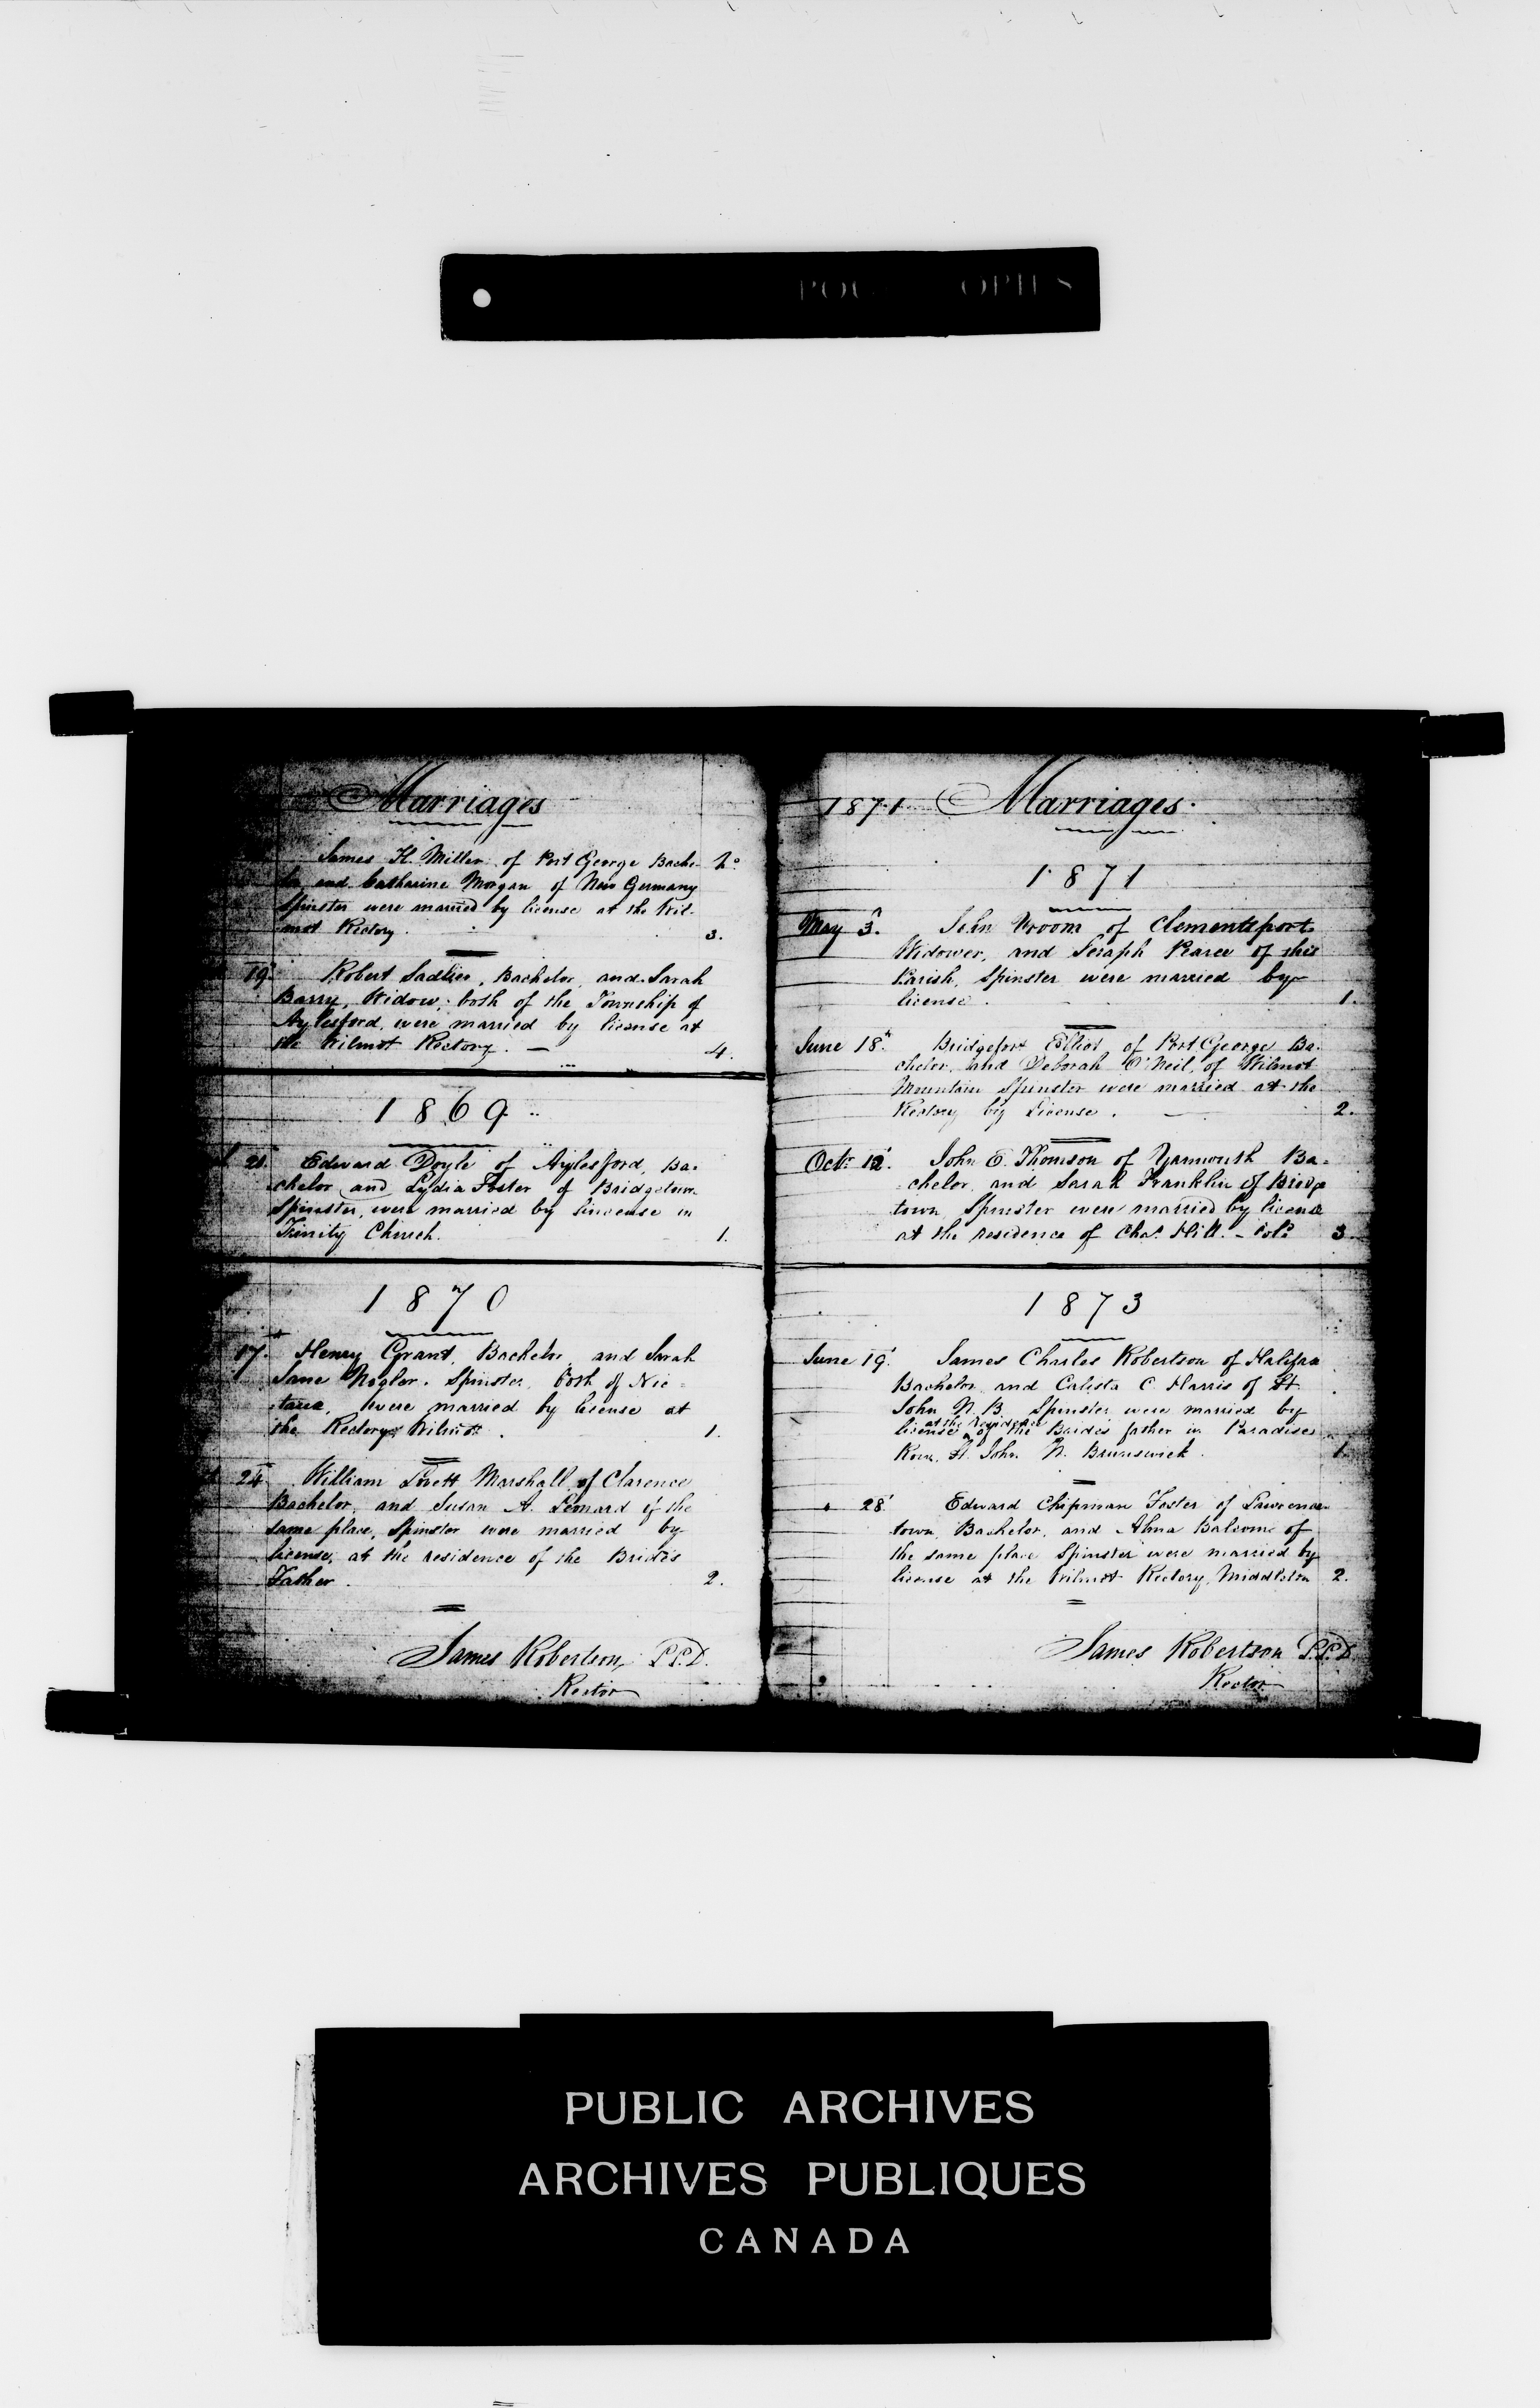 Marriages
James H. Miller of Port George Bache- No
lor and Catharine Morgan of New Germany
Spinster were married by license at the Wil-
mot Rectory. 3.
19. Robert Sadlier, Bachelor, and Sarah
Barry, Widow, both of the Township of
Aylesford, were married by license at
the Wilmot Rectory. — 4.
1869
21. Edward Doyle of Aylesford, Ba-
chelor and Lydia Foster of Bridgetown
Spinster, were married by lincense in
Trinity Church. 1.
1870
17. Henry Grant, Bachelor, and Sarah
Jane Spinster, both of Nic-
taux, were married by license at
the Rectory Wilmot. 1.
24 William Marshall of Clarence
Bachelor, and Susan A. Leonard of the
same place, Spinster were married by
license, at the residence of the Bride's
Father. 2.
James Robertson,
Rector
1871 Marriages.
1871
May 3. John Vroom of Clementsport
Widower, and Seraph Pearce of this
Parish, Spinster were married by
license. 1.
June 18. Elliot of Port George Ba-
chelor, and Deborah O'Neil, of Wilmot
Mountain Spinster were married at the
Rectory by License. — 2.
Octr 12. John E. Thomson of Yarmouth Ba-
chelor, and Sarah Franklin of Bridge
town, Spinster were married by license
at the residence of Chas. Hill. 3
1873
June 19. James Charles Robertson of Halifax
Bachelor, and Calista C. Harris of St.
John N. B. Spinster were married by
at the Residence
license of the Bride's father in Paradise
Row, St. John N. Brunswick. 1.
" 28. Edward Chipman Foster of Lawrence-
town, Bachelor, and Alma Balcome of
the same place Spinster were married by
license at the Wilmot Rectory, Middleton 2.
James Robertson
Rector
PUBLIC ARCHIVES
ARCHIVES PUBLIQUES
CANADA